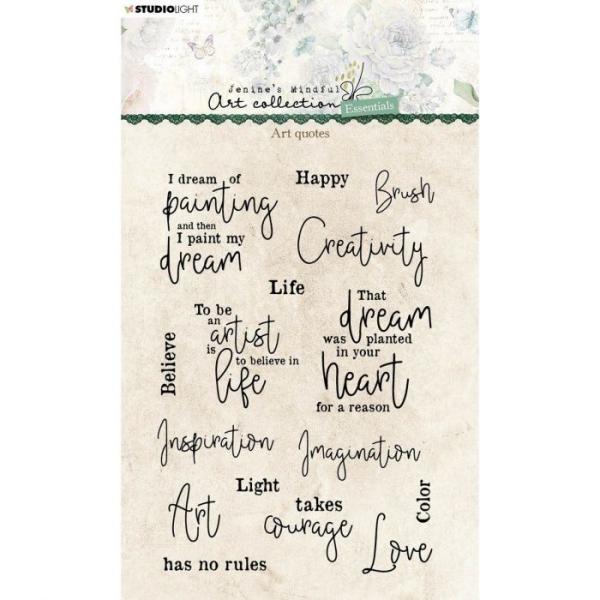 STUDIOLIGHT
Jenine's Mindful
Art collection
Essentials
Art quotes
I dream of
painting
and then
I paint my
dream
Happy
Brush
Creativity
Life
To be
an
artist
is
to believe in
life
Believe
That
dream
was planted
in your
heart
for a reason
Inspiration
Imagination
Light
Art
has no rules
takes
courage
Color
Love